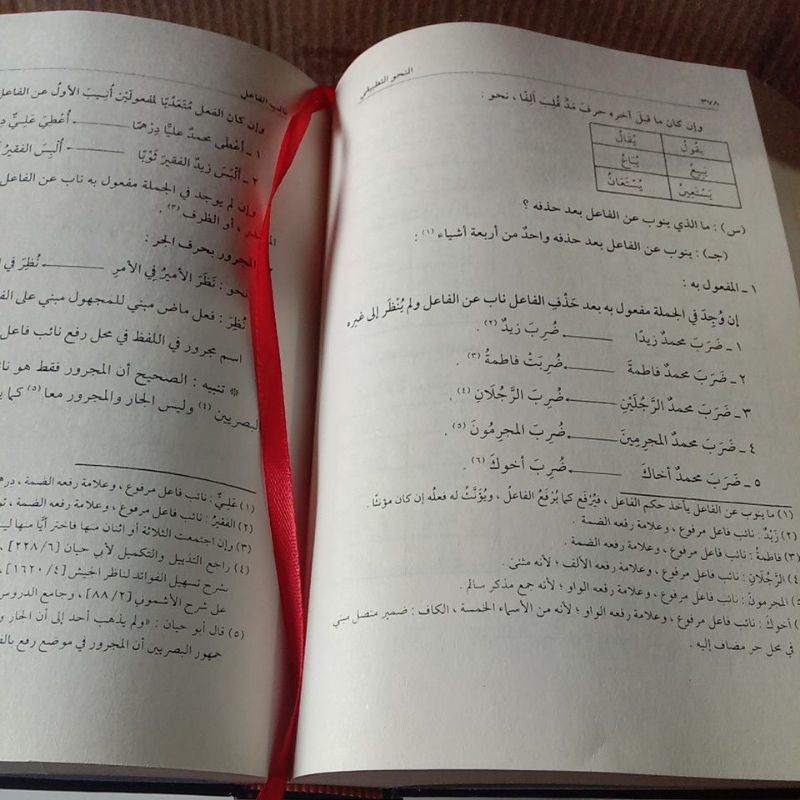 ٣٧٨
النحو التطبيقي
وإن كان ما قبل آخره حرفَ مَدٍّ قُلِبَ ألِفًا ، نحو :
يَقُولُ يُقَالُ
يَبِيعُ يُبَاعُ
يَسْتَعِينُ يُسْتَعَانُ
(س) : ما الذي ينوب عن الفاعل بعد حذفه ؟
(جـ) : ينوب عن الفاعل بعد حذفه واحدٌ من أربعة أشياء (١) :
١ ـ المفعول به :
إن وُجِدَ في الجملة مفعول به بعد حَذْفِ الفاعل ناب عن الفاعل ولم يُنْظَر إلى غيره
١ ـ ضَرَبَ محمدٌ زيدًا ضُرِبَ زيدٌ (٢) .
٢ ـ ضَرَبَ محمدٌ فاطمةَ ضُرِبَتْ فاطمةُ (٣) .
٣ ـ ضَرَبَ محمدٌ الرَّجُلَيْنِ ضُرِبَ الرَّجُلَانِ (٤) .
٤ ـ ضَرَبَ محمدٌ المجرِمِينَ ضُرِبَ المجرِمُونَ (٥) .
٥ ـ ضَرَبَ محمدٌ أخاكَ ضُرِبَ أخوكَ (٦) .
(١) ما ينوب عن الفاعل يأخذ حكم الفاعل ، فيُرْفَع كما يُرْفَعُ الفاعلُ ، ويُؤَنَّثُ له فعلُه إن كان مؤنثًا .
(٢) زَيْدٌ : نائب فاعل مرفوع ، وعلامة رفعه الضمة .
(٣) فاطمةُ : نائب فاعل مرفوع ، وعلامة رفعه الضمة .
٤) الرَّجُلَانِ : نائب فاعل مرفوع ، وعلامة رفعه الألف ؛ لأنه مثنى .
٥) المجرمونَ : نائب فاعل مرفوع ، وعلامة رفعه الواو ؛ لأنه جمع مذكر سالم .
) أخوكَ : نائب فاعل مرفوع ، وعلامة رفعه الواو ؛ لأنه من الأسماء الخمسة ، الكاف : ضمير متصل مبني
في محل جر مضاف إليه .
نائب الفاعل
وإن كان الفعل مُتَعَدِّيًا لمفعولَيْنِ أُنيبَ الأولُ عن الفاعل
١ ـ أَعْطَى محمدٌ عليًّا دِرْهَمًا أُعْطِيَ عَلِيٌّ
٢ ـ أَلْبَسَ زيدٌ الفقيرَ ثَوْبًا أُلْبِسَ الفقيرُ
وإن لم يوجد في الجملة مفعول به ناب عن الفاعل
، أو الظرف (٣) .
المجرور بحرف الجر :
نحو : نَظَرَ الأميرُ فِي الأمرِ نُظِرَ في
نُظِرَ : فعل ماض مبني للمجهول مبني على
اسم مجرور في اللفظ في محل رفع نائب فاعل
* تنبيه : الصحيح أن المجرور فقط هو
البصريين (٤) وليس الجار والمجرور معا (٥) كما
(١) عَلِيٌّ : نائب فاعل مرفوع ، وعلامة رفعه الضمة ،
(٢) الفقيرُ : نائب فاعل مرفوع ، وعلامة رفعه الضمة ،
(٣) وإن اجتمعت الثلاثة أو اثنان منها فاختر أيًّا منها
(٤) راجع التذييل والتكميل لأبي حيان [٦/ ٢٢٨] ،
شرح تسهيل الفوائد لناظر الجيش [٤/ ١٦٢٠]
على شرح الأشموني [٢/ ٨٨] ، وجامع الدروس
(٥) قال أبو حيان : «ولم يذهب أحد إلى أن الجار
جمهور البصريين أن المجرور في موضع رفع